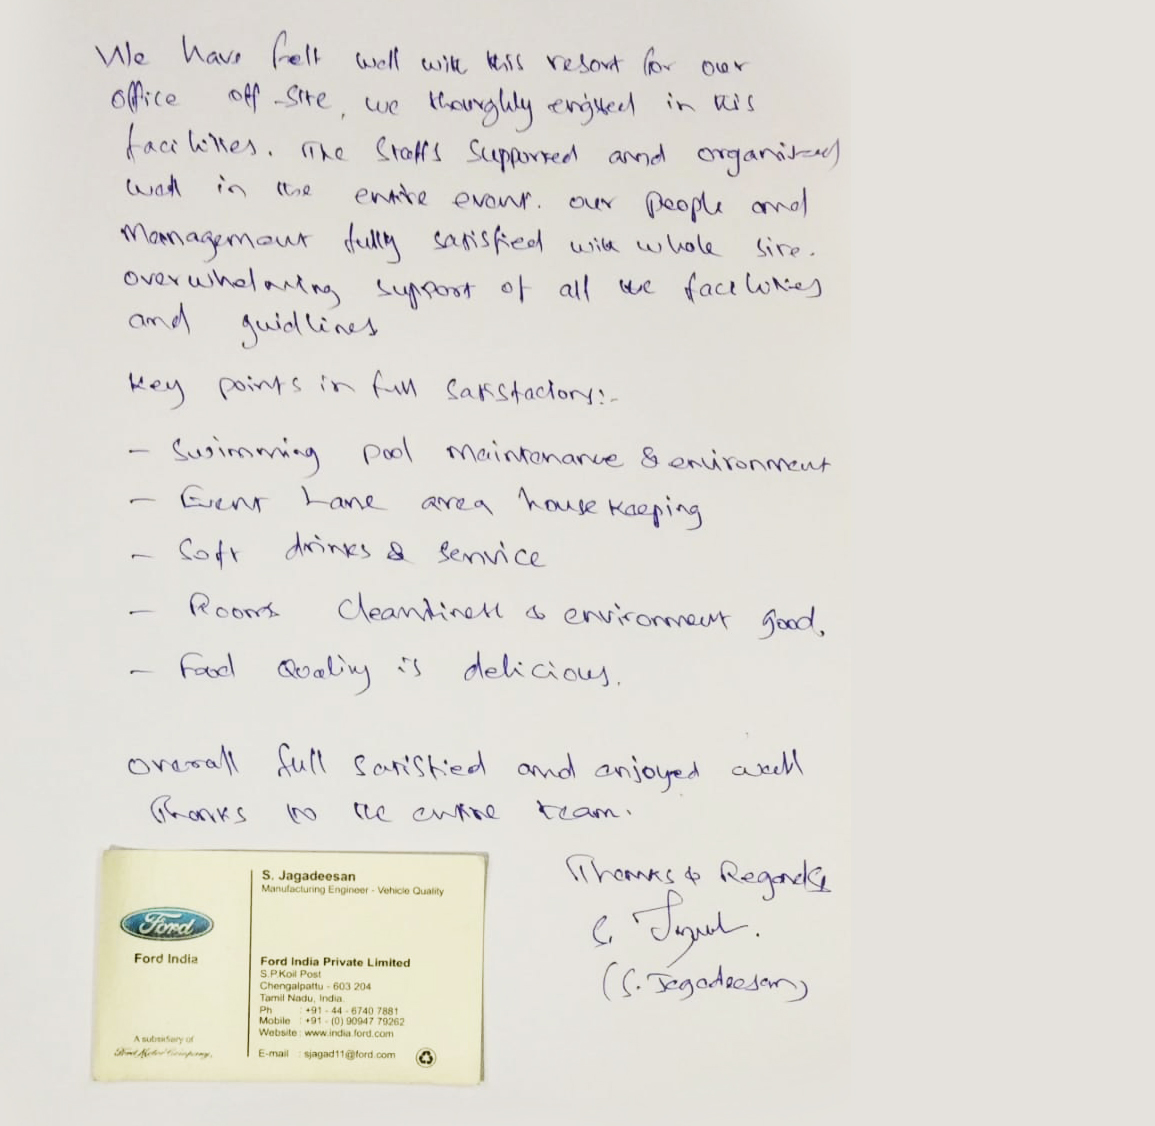 We have felt well with this resort for our
office off-site, we thoroughly enjoyed in this
facilities. The Staffs Supported and organised
well in the entire event. our people and
Management fully satisfied with whole site.
overwhelming support of all the facilities
and guidlines
Key points in full satisfactory:-
- Swimming pool maintenance & environment
- Event Lane area house keeping
- Soft drinks & service
- Rooms Cleanliness & environment good.
- Food Quality is delicious.
overall full satisfied and enjoyed well
Thanks to the entire team.
Thanks & Regards
S.
(S. Jagadeesan)
Ford
Ford India
A subsidiary of
Ford Motor Company,
S. Jagadeesan
Manufacturing Engineer - Vehicle Quality
Ford India Private Limited
S.P.Koil Post
Chengalpattu - 603 204
Tamil Nadu, India.
Ph : +91 - 44 - 6740 7881
Mobile : +91 - (0) 90947 79262
Website : www.india.ford.com
E-mail : sjagad11@ford.com